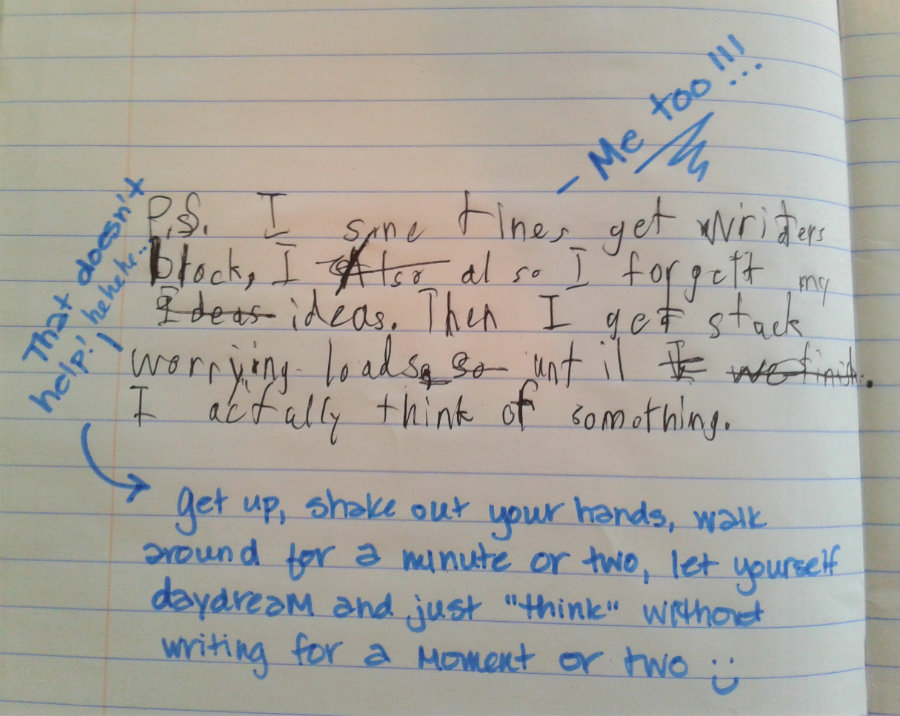 - Me too!!!
P.S. I some tines get Writers
block, I Also also I forgett my
Ideas ideas. Then I get stuck
worrying loads, so until I
I actally think of somothing.
That doesn't
help! hehehe...
get up, shake out your hands, walk
around for a minute or two, let yourself
daydream and just "think" without
writing for a moment or two :)